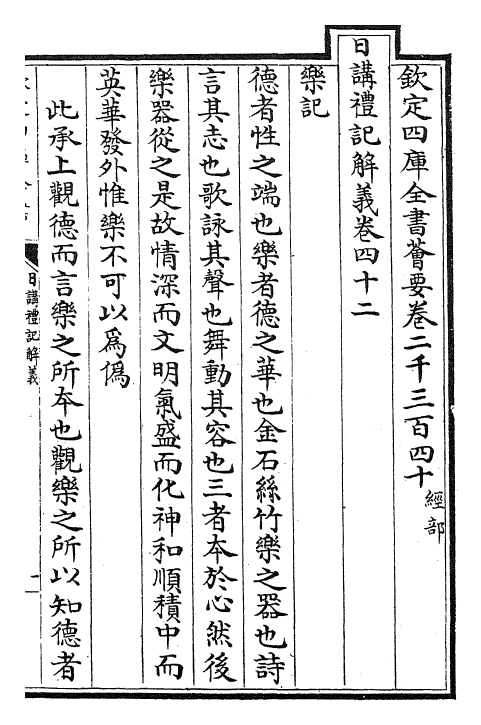 欽定四庫全書薈要卷二千三百四十 經部
日講禮記解義卷四十二
樂記
德者性之端也樂者德之華也金石絲竹樂之器也詩
言其志也歌詠其聲也舞動其容也三者本於心然後
樂器從之是故情深而文明氣盛而化神和順積中而
英華發外惟樂不可以爲僞
此承上觀德而言樂之所本也觀樂之所以知德者
日講禮記解義
一